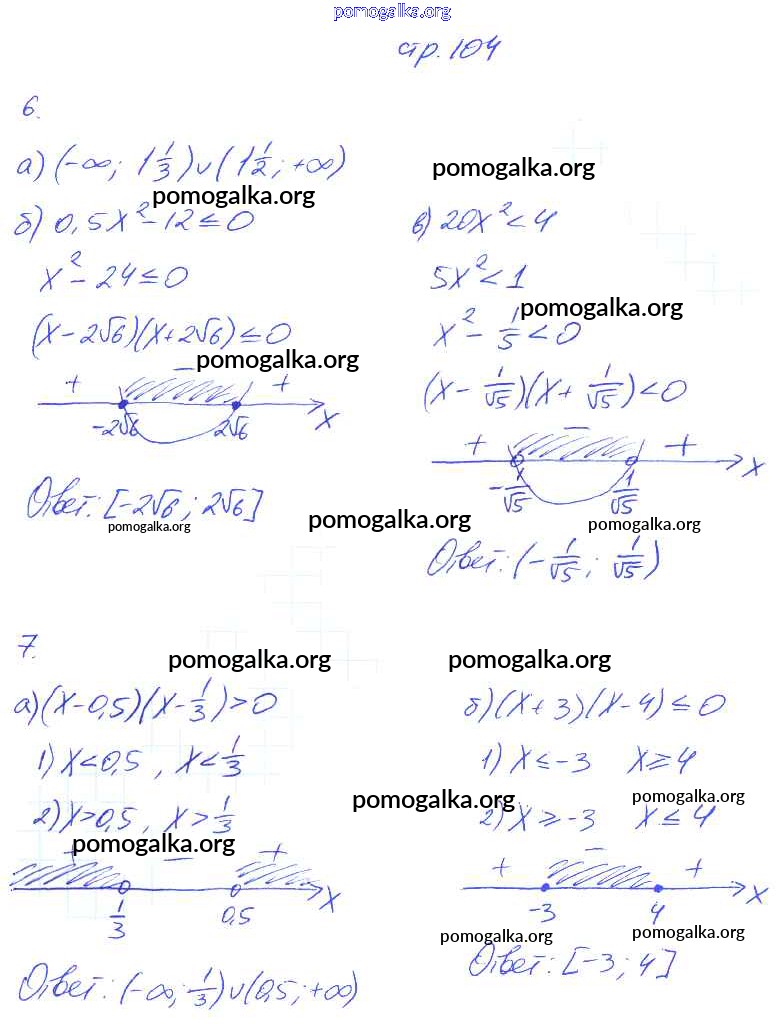 pomogalka.org
стр. 104
6.
а) (-∞; 1 1/3) ∪ (1 1/2; +∞)
pomogalka.org
pomogalka.org
б) 0,5x² - 12 ≤ 0
x² - 24 ≤ 0
(x - 2√6)(x + 2√6) ≤ 0
pomogalka.org
+ − +
-2√6 2√6 x
Ответ: [-2√6; 2√6]
pomogalka.org
в) 20x² < 4
5x² < 1
pomogalka.org
x² - 1/5 < 0
(x - 1/√5)(x + 1/√5) < 0
+ − +
-1/√5 1/√5 x
pomogalka.org
pomogalka.org
Ответ: (-1/√5; 1/√5)
7.
pomogalka.org
pomogalka.org
а) (x - 0,5)(x - 1/3) > 0
1) x < 0,5, x < 1/3
2) x > 0,5, x > 1/3
pomogalka.org
+ − +
1/3 0,5 x
Ответ: (-∞; 1/3) ∪ (0,5; +∞)
б) (x + 3)(x - 4) ≤ 0
1) x ≤ -3 x ≥ 4
pomogalka.org
pomogalka.org
2) x ≥ -3 x ≤ 4
+ − +
-3 4 x
pomogalka.org
pomogalka.org
Ответ: [-3; 4]